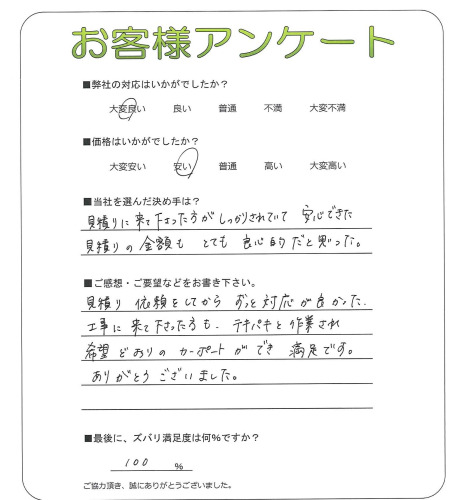 お客様アンケート
■弊社の対応はいかがでしたか？
大変良い 良い 普通 不満 大変不満
■価格はいかがでしたか？
大変安い 安い 普通 高い 大変高い
■当社を選んだ決め手は？
見積りに来て下さった方がしっかりされていて 安心できた
見積りの金額も とても 良心的だと思った。
■ご感想・ご要望などをお書き下さい。
見積り 依頼をしてから ずっと対応が良かった.
工事に来て下さった方も、テキパキと作業され
希望どおりの カーポートができ 満足です。
ありがとうございました。
■最後に、ズバリ満足度は何%ですか？
100 %
ご協力頂き、誠にありがとうございました。